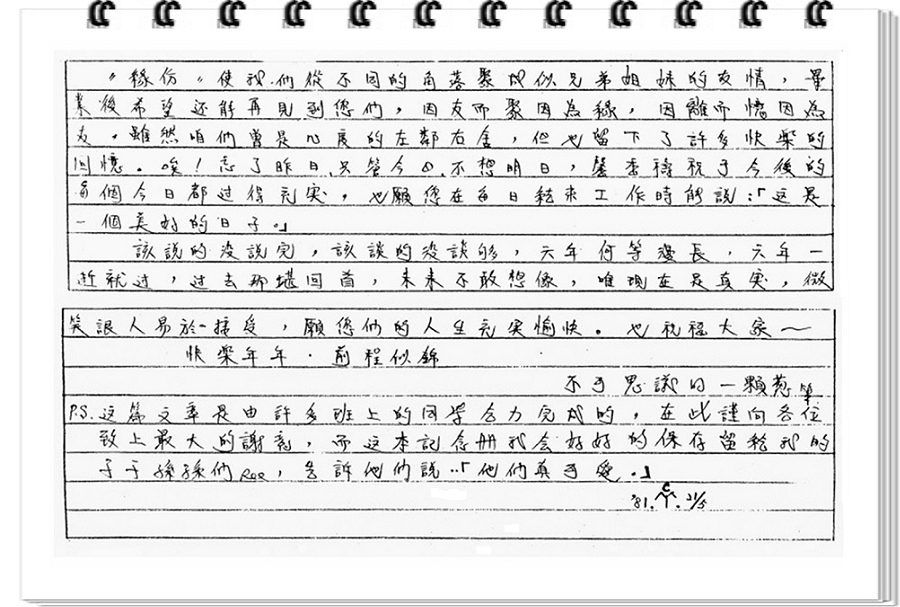 〝緣份〞使我們從不同的角落聚成似兄弟姐妹的友情，畢
業後希望还能再見到您們，因友而聚因為緣，因離而憶因為
友。雖然咱們曾是心度的左鄰右舍，但也留下了許多快樂的
回憶。唉！忘了昨日，只管今日，不想明日，馨香禱祝于今後的
每個今日都过得充実，也願您在每日結束工作時能說：「这是
一個美好的日子。」
該說的沒說完，該談的沒談夠，六年何等漫長，六年一
逝就过，过去那堪回首，未來不敢想像，唯現在是真実，微
笑讓人易於接受，願您們的人生充実愉快。也祝福大家～
快樂年年．前程似錦
不可思議的一顆蔥 筆
P.S.这篇文章是由許多班上的同学合力完成的，在此謹向各位
致上最大的謝意，而这本記念册我会好好的保存留給我的
子子孫孫們，告訴他們說：「他們真可愛。」
'81. 21/5